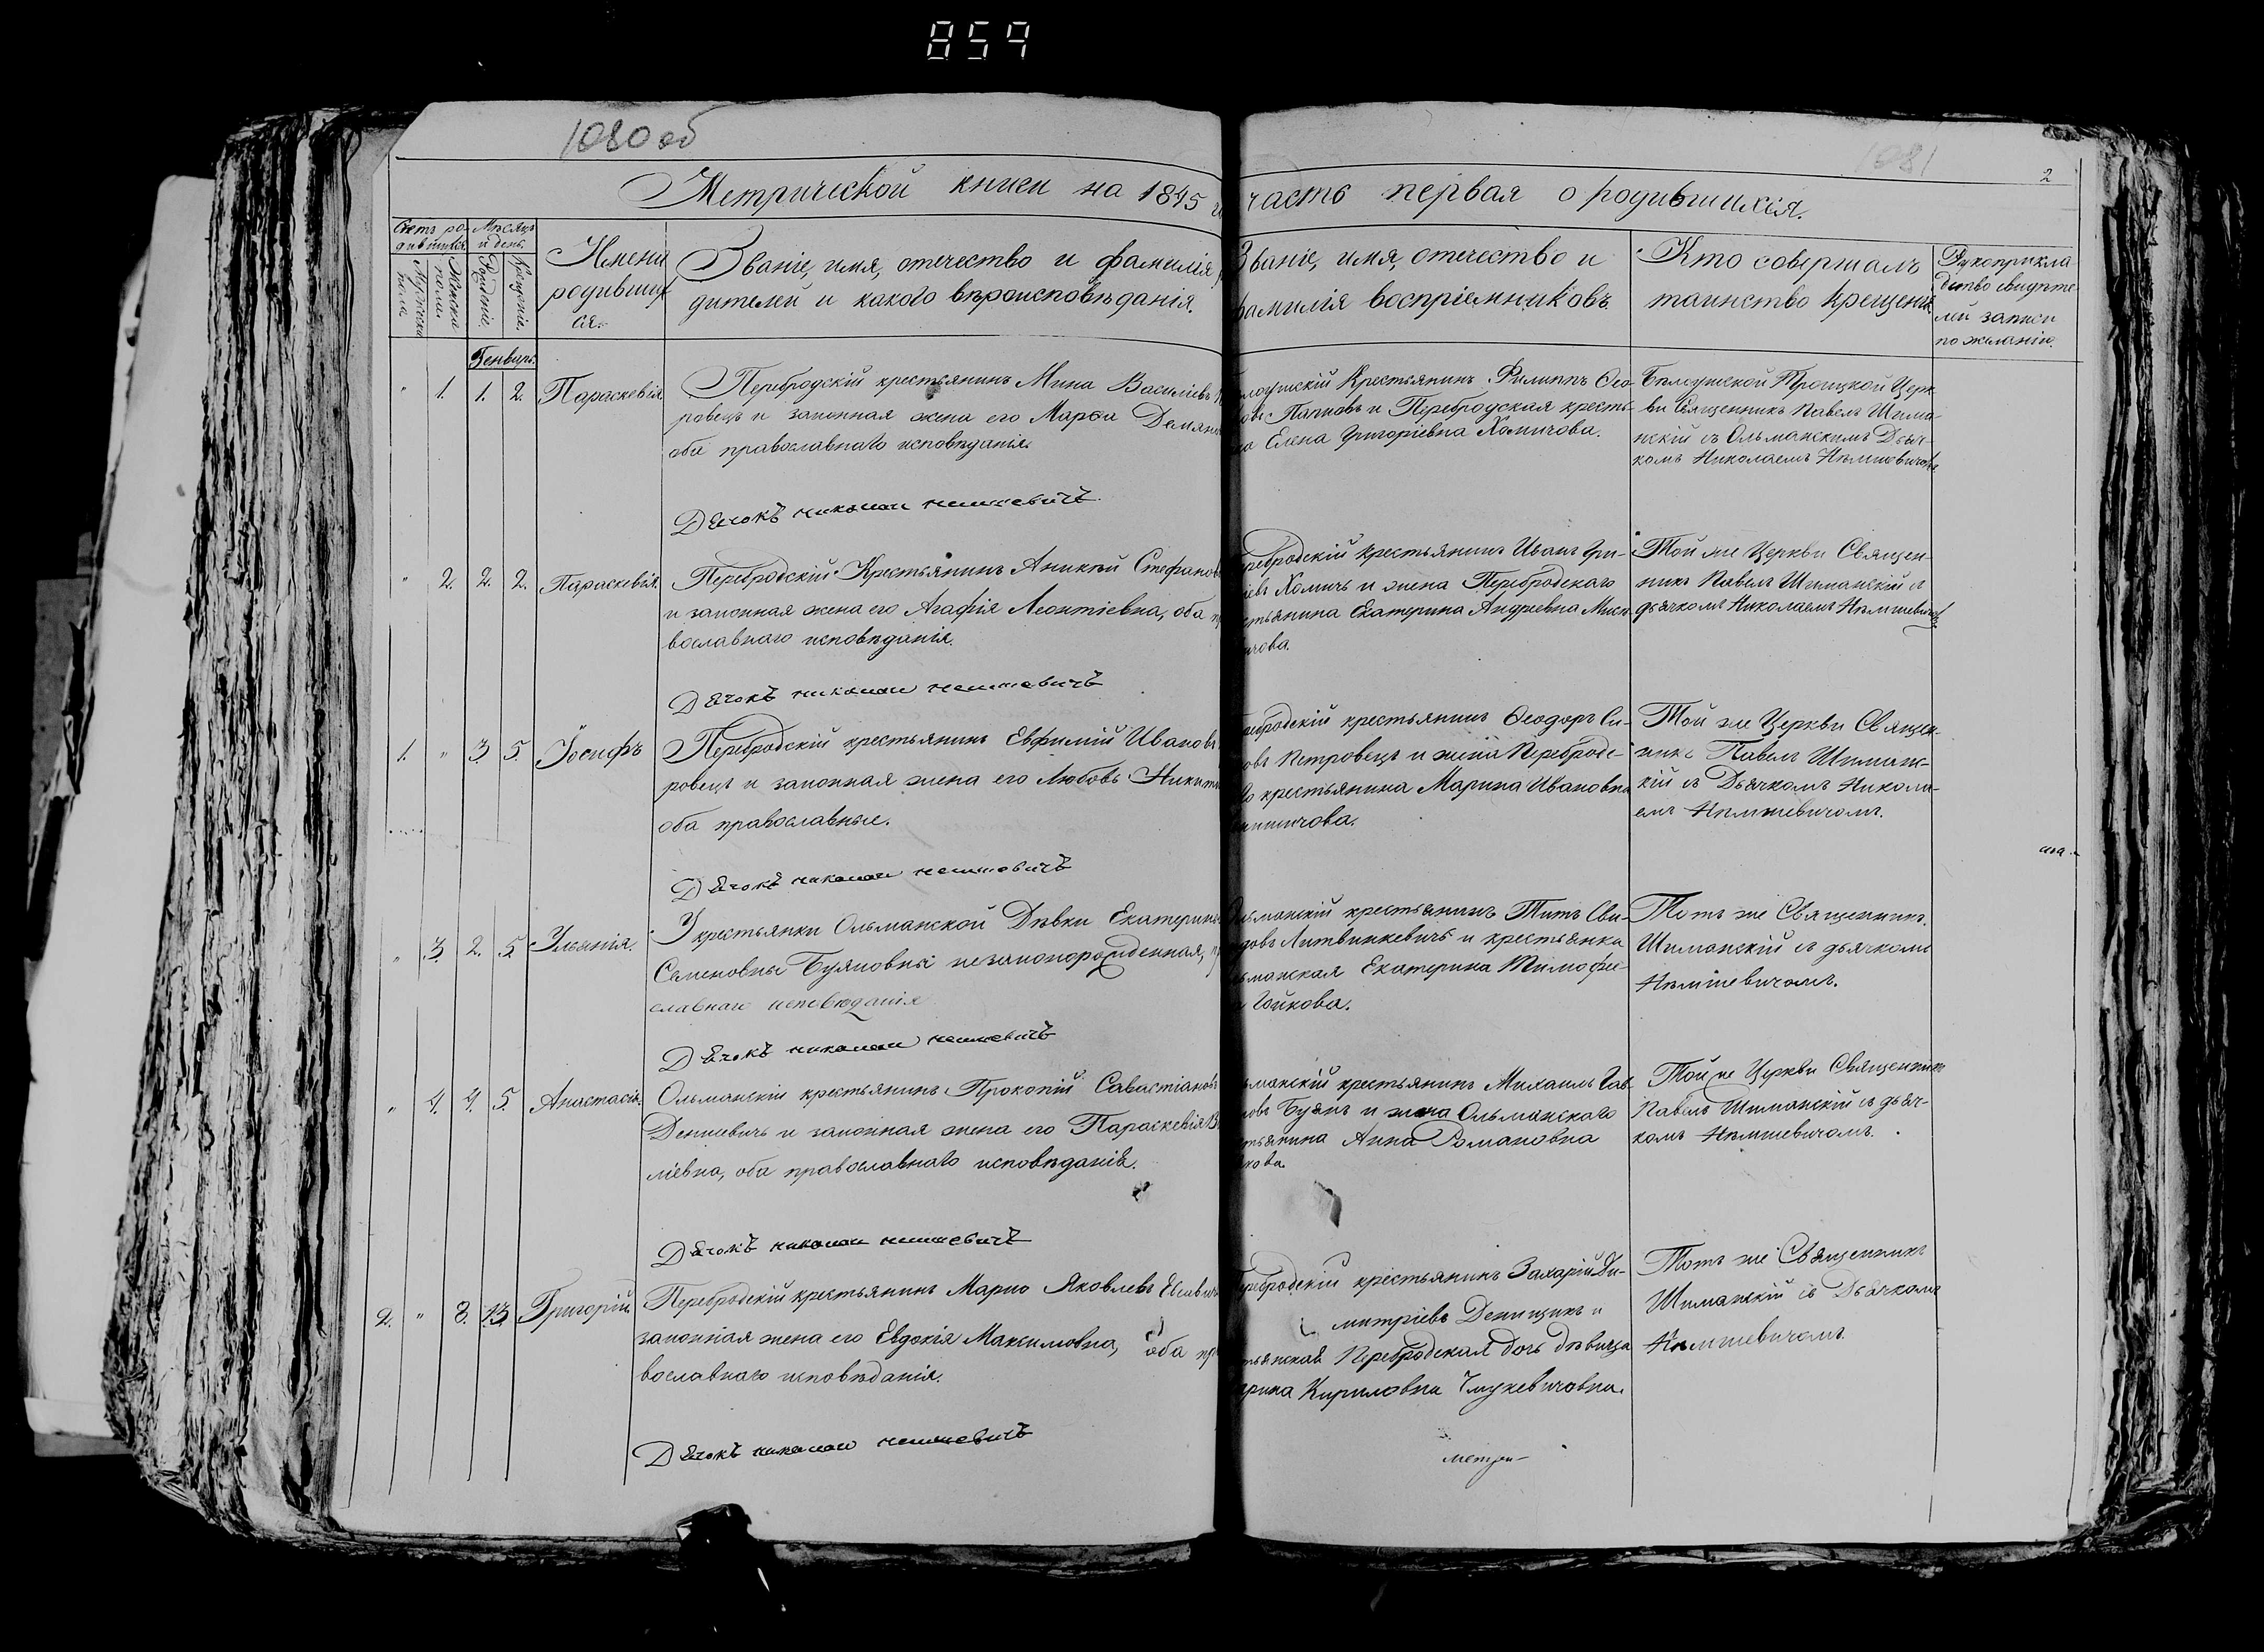 859
1080 об
1081
2
Метрической книги на 1845 г
часть первая о родившихся.
Счетъ ро-
дившихся.
Мѣсяцъ
и день.
Мужеска
пола.
Женска
пола.
Рожденіе.
Крещеніе.
Имена
родивших
ся.
Званіе, имя, отечество и фамилія
дителей и какого вѣроисповѣданія.
Званіе, имя, отечество и
фамилія воспріемниковъ.
Кто совершалъ
таинство крещенія
Рукоприкла
дство свидѣте
лей записи
по желанію.
Генварь.
" 1. 1. 2. Параскевія
Перебродскій крестьянинъ Мина Василіевъ
ровецъ и законная жена его Марѳа Демян
оба православнаго исповѣданія.
Дячокъ николаи немшевичъ
Крестьянинъ Филиппъ Ѳео-
Папковъ и Перебродская кресть-
Елена Григоріевна Хомичова.
Бѣлоушской Троицкой Церк-
ви Священникъ Павелъ Шима-
нскій съ Ольманскимъ Дьяч-
комъ Николаемъ Нѣмшевичомъ
" 2. 2. 2. Параскевія.
Перебродскій Крестьянинъ Аникѣй Стефанов
и законная жена его Агафія Леонтіевна, оба
вославнаго исповѣданія.
Дячокъ николаи немшевичъ
ребродскій крестьянинъ Иванъ Гри-
Хомичъ и жена Перебродскаго
стьянина Екатерина Андреевна
чова.
Той же Церкви Священ-
никъ Павелъ Шиманскій съ
дьячкомъ Николаемъ Нѣмшевичомъ
1. " 3. 5. Іосифъ
Перебродскій крестьянинъ Евфимій Ивановъ
ровецъ и законная жена его Любовь Никит
оба православные.
Дячокъ николаи немшевичъ
ребродскій крестьянинъ Ѳеодоръ Си-
овъ Петровецъ и жена Перебродс-
крестьянина Марина Ивановна
Той же Церкви Священ-
никъ Павелъ Шиманс-
кій съ Дьячкомъ Никола-
емъ Нѣмшевичомъ.
" 3. 2. 5. Ульянія.
У крестьянки Ольманской Дѣвки Екатерины
Семеновны Буяновны незаконорожденная,
славнаго исповѣданія
Дячокъ николаи немшевичъ
льманскій крестьянинъ Титъ Сви-
довъ Литвинкевичъ и крестьянка
ьманская Екатерина Тимофее-
Гойкова.
Тотъ же Священникъ
Шиманскій съ дьячкомъ
Нѣмшевичомъ.
" 4. 4. 5. Анастасія.
Ольманскій крестьянинъ Прокопій Савастіановъ
Денисевичъ и законная жена его Параскевія В
ліевна, оба православнаго исповѣданія.
Дячокъ николаи немшевичъ
ьманскій крестьянинъ Михаилъ Гав-
Буянъ и жена Ольманскаго
стьянина Анна Романовна
кова.
Той же Церкви Священникъ
Павелъ Шиманскій съ дьяч-
комъ Нѣмшевичомъ.
2. " 8. 13. Григорій
Перебродскій крестьянинъ Марко Яковлевъ
законная жена его Евдокія Максимовна, оба пр
вославнаго исповѣданія.
Дячокъ николаи немшевичъ
ребродскій крестьянинъ Захарій Ди-
митріевъ Денищикъ и
тьянская Перебродская дочь дѣвица
рина Кириловна Чмукевичовна.
Тотъ же Священникъ
Шиманскій съ Дьячкомъ
Нѣмшевичомъ.
метри-